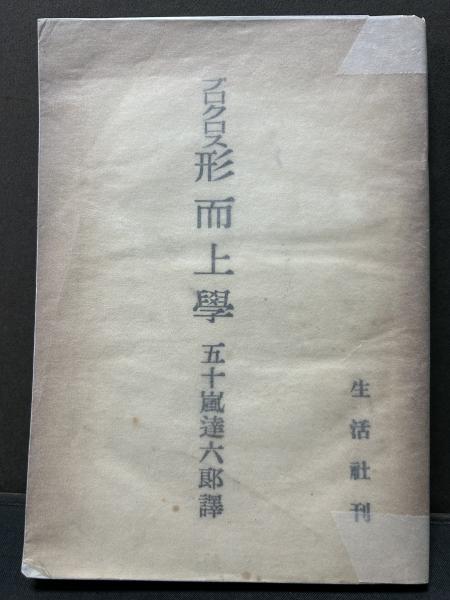 プロクロス形而上學 五十嵐達六郎譯
生活社刊